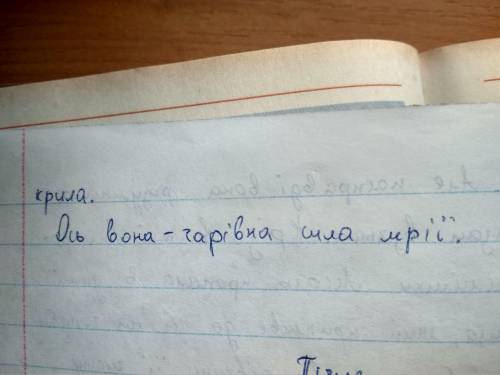 крила.
Ось вона - чарівна сила мрії.